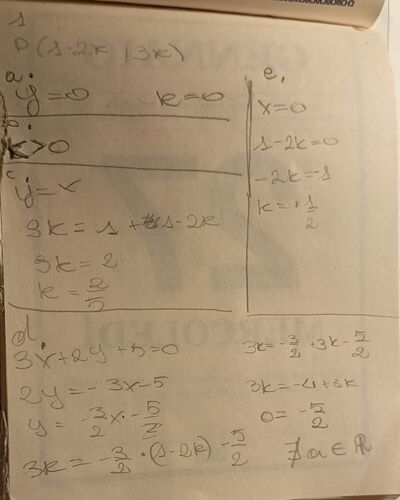 1
P(1-2k ; 3k)
a.
y=0 k=0
b.
k>0
c.
y=x
3k = 1 + 1-2k
3k = 2
k = 2/5
e.
x=0
1-2k=0
-2k=-1
k=+1/2
d.
3x+2y+5=0
2y=-3x-5
y = -3/2x - 5/2
3k = -3/2 · (1-2k) - 5/2
3k=-3/2+3k-5/2
3k=-4+3k
0=-5/2
∄ a ∈ R
27
MERCOLEDÌ